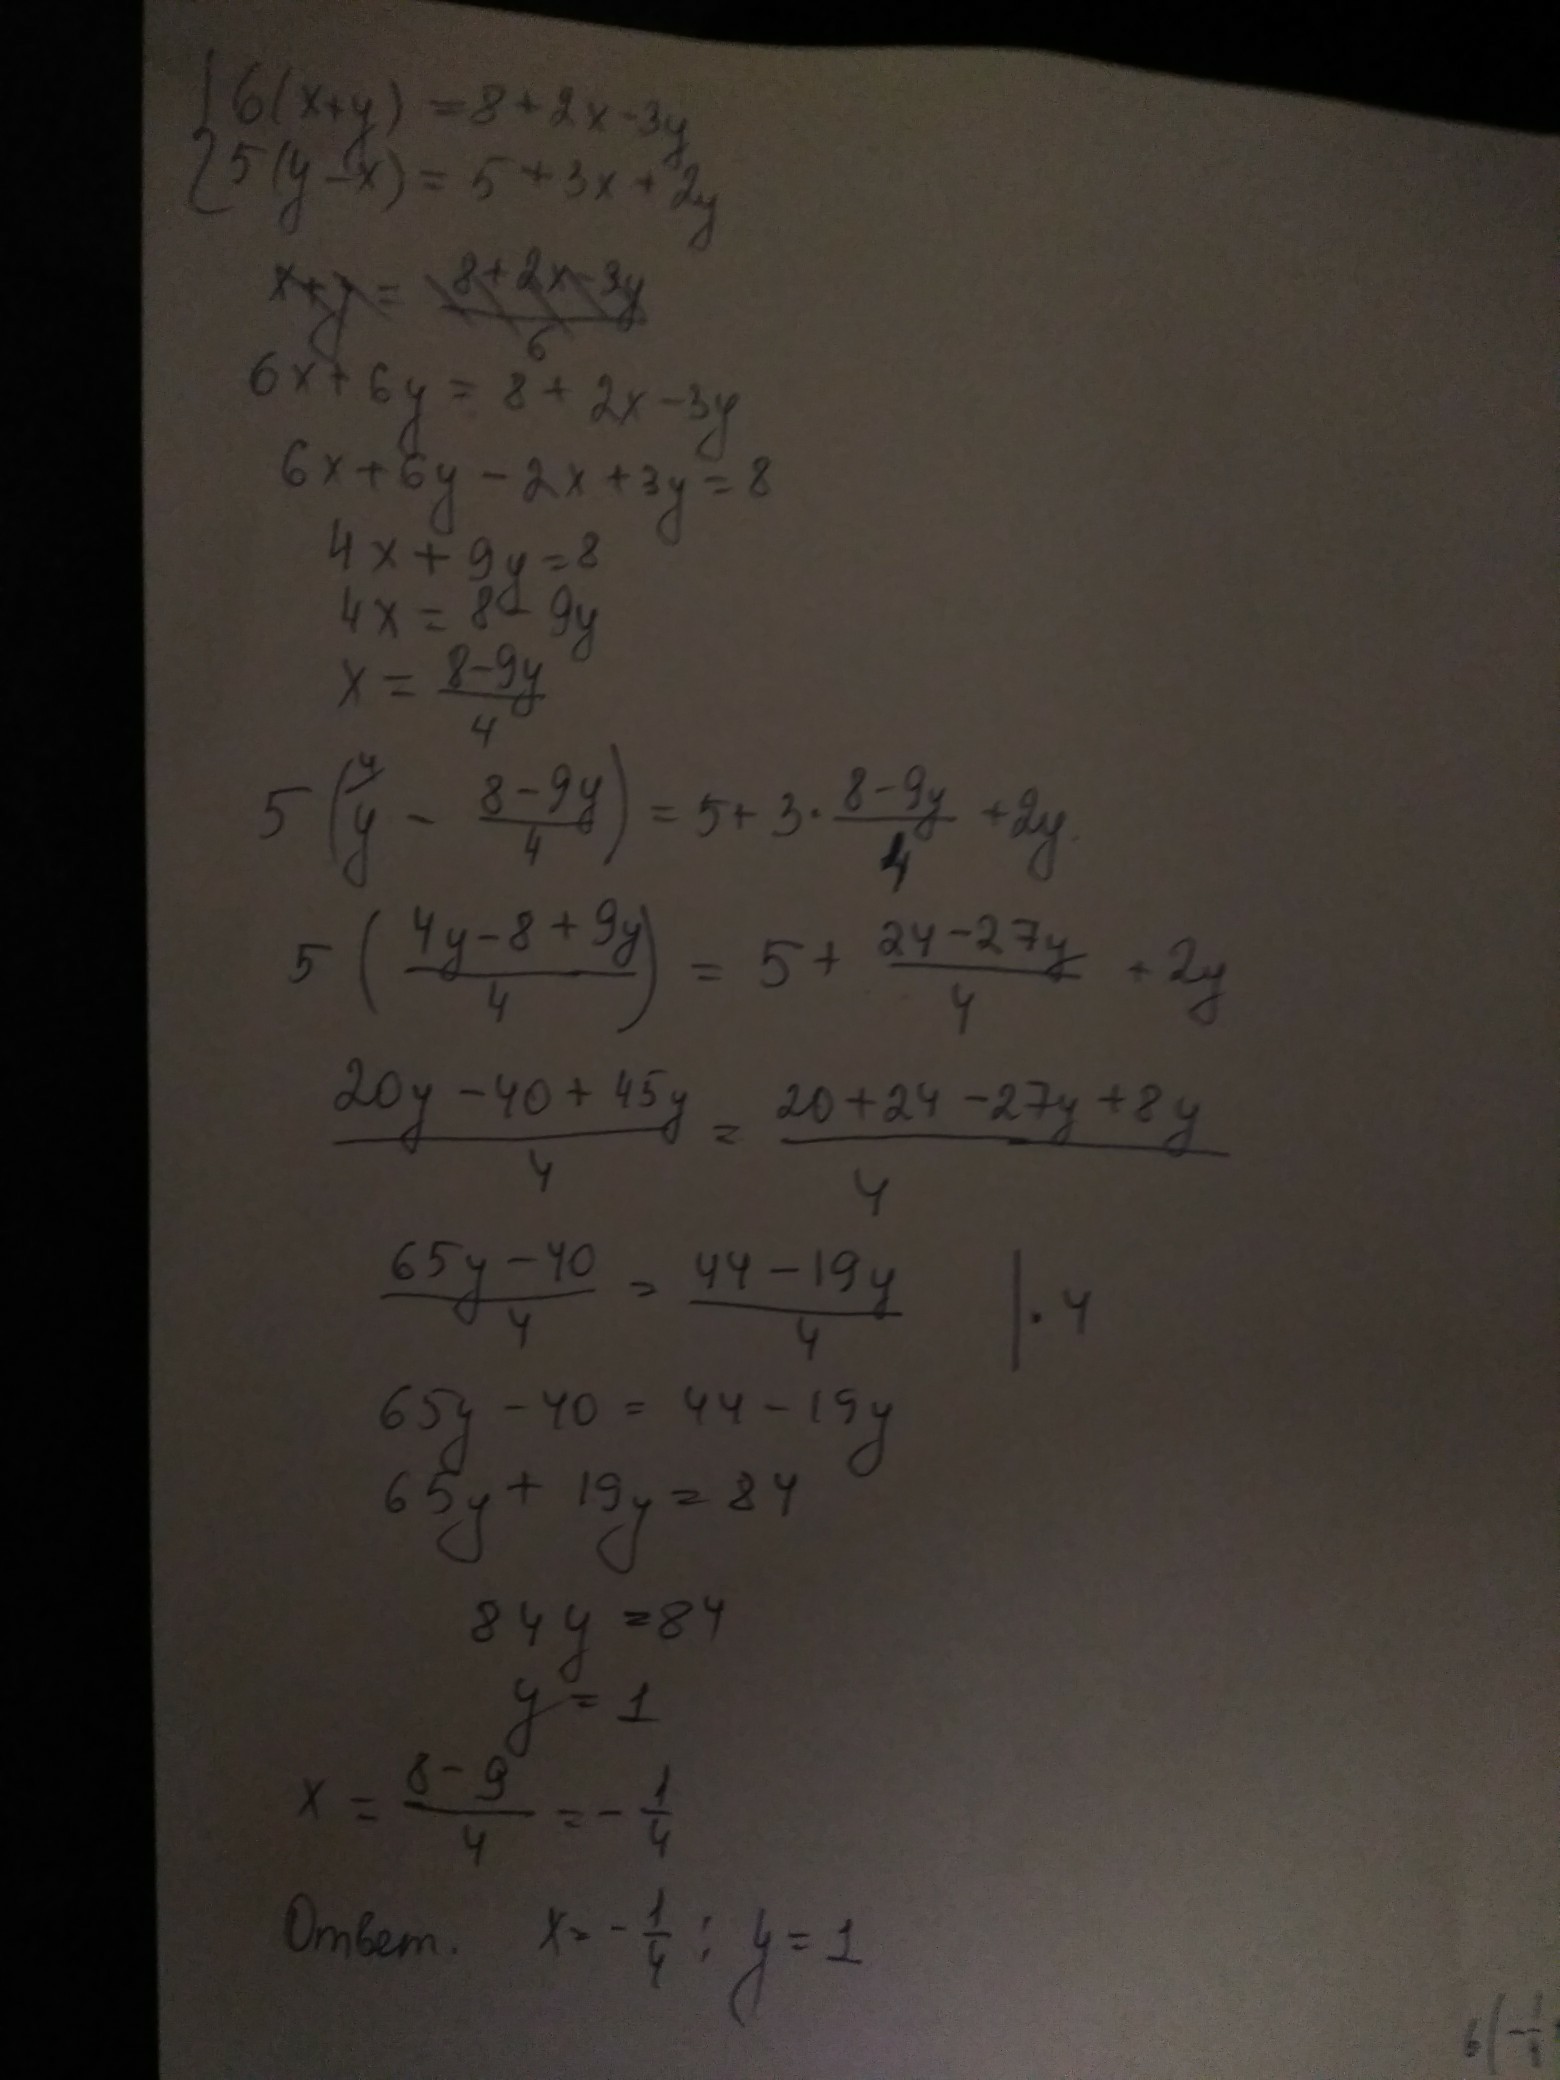 { 6(x+y) = 8+2x-3y
5(y-x) = 5+3x+2y
x+y = (8+2x-3y)/6
6x+6y = 8+2x-3y
6x+6y-2x+3y=8
4x+9y=8
4x=8-9y
x = (8-9y)/4
5(y - (8-9y)/4) = 5+3·(8-9y)/4 +2y
5((4y-8+9y)/4) = 5+ (24-27y)/4 +2y
(20y-40+45y)/4 = (20+24-27y+8y)/4
(65y-40)/4 = (44-19y)/4 |·4
65y-40 = 44-19y
65y+19y=84
84y=84
y=1
x = (8-9)/4 = -1/4
Ответ. x=-1/4; y=1